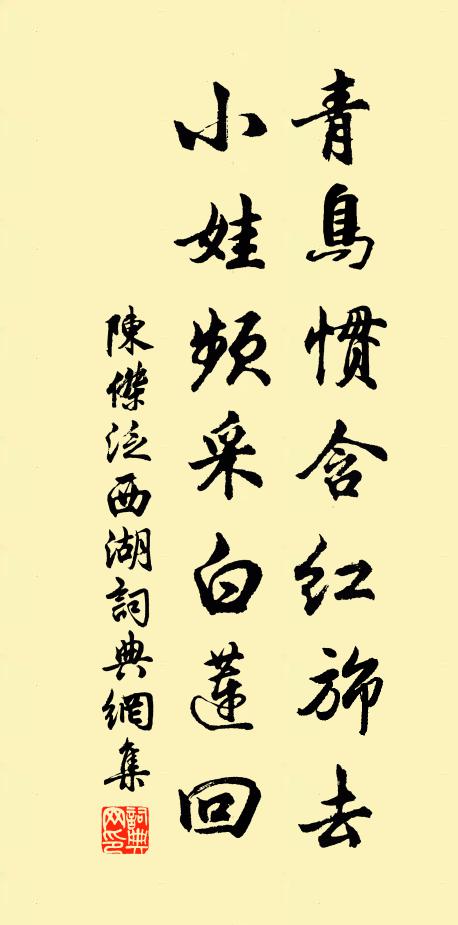 青鳥慣含紅旆去
小娃頻采白蓮回
陳傑泛西湖詞典網集
詞典网印